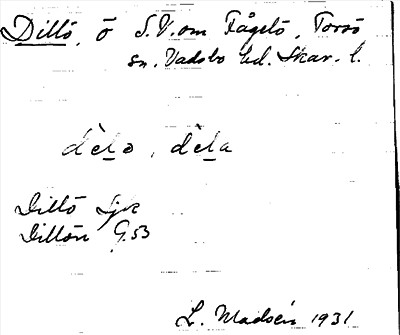 Dillö, ö S.V. om Fågelö, Torsö
sn. Vadsbo hd. Skar. l.
dèlə, dèla
Dillö Sjk
Dillön G.53
L. Madsén 1931